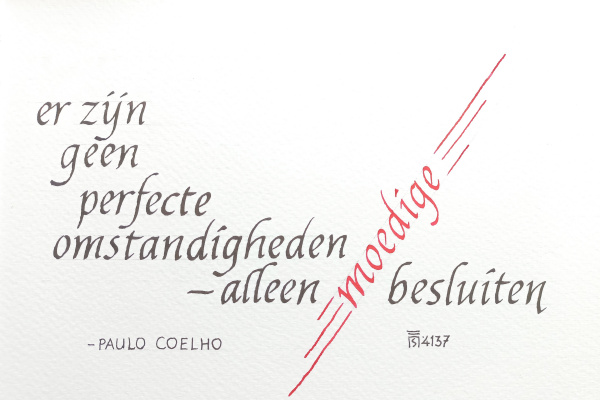 er zijn
geen
perfecte
omstandigheden
– alleen moedige besluiten
– PAULO COELHO
4137